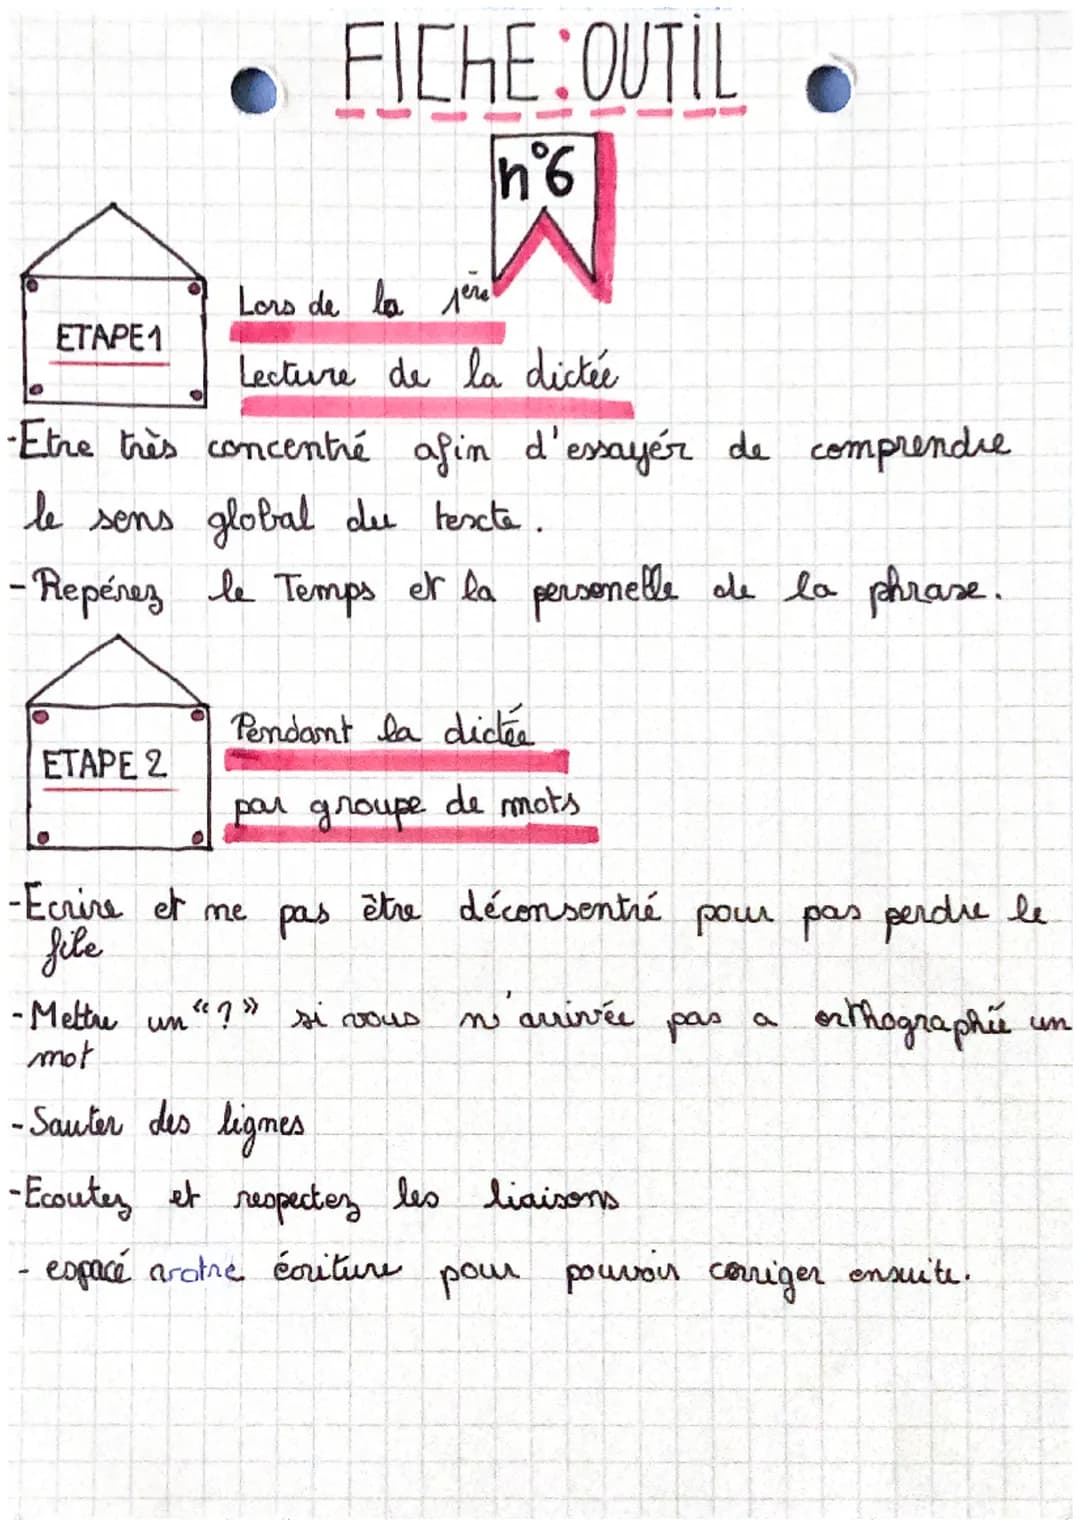 FICHE:OUTIL
n°6
ETAPE1
Lors de la 1ère
Lecture de la dictée
-Etre très concentré afin d'essayér de comprendre
le sens global du texte.
-Repérez le Temps et la personelle de la phrase.
ETAPE 2
Pendant la dictée
par groupe de mots
-Ecrire et ne pas être déconsentré pour pas perdre le
file
-Mettre un "?" si vous n'arrivée pas a orthographié un
mot
-Sauter des lignes
-Ecoutez et respectez les liaisons
- espacé votre écriture pour pouvoir corriger ensuite.